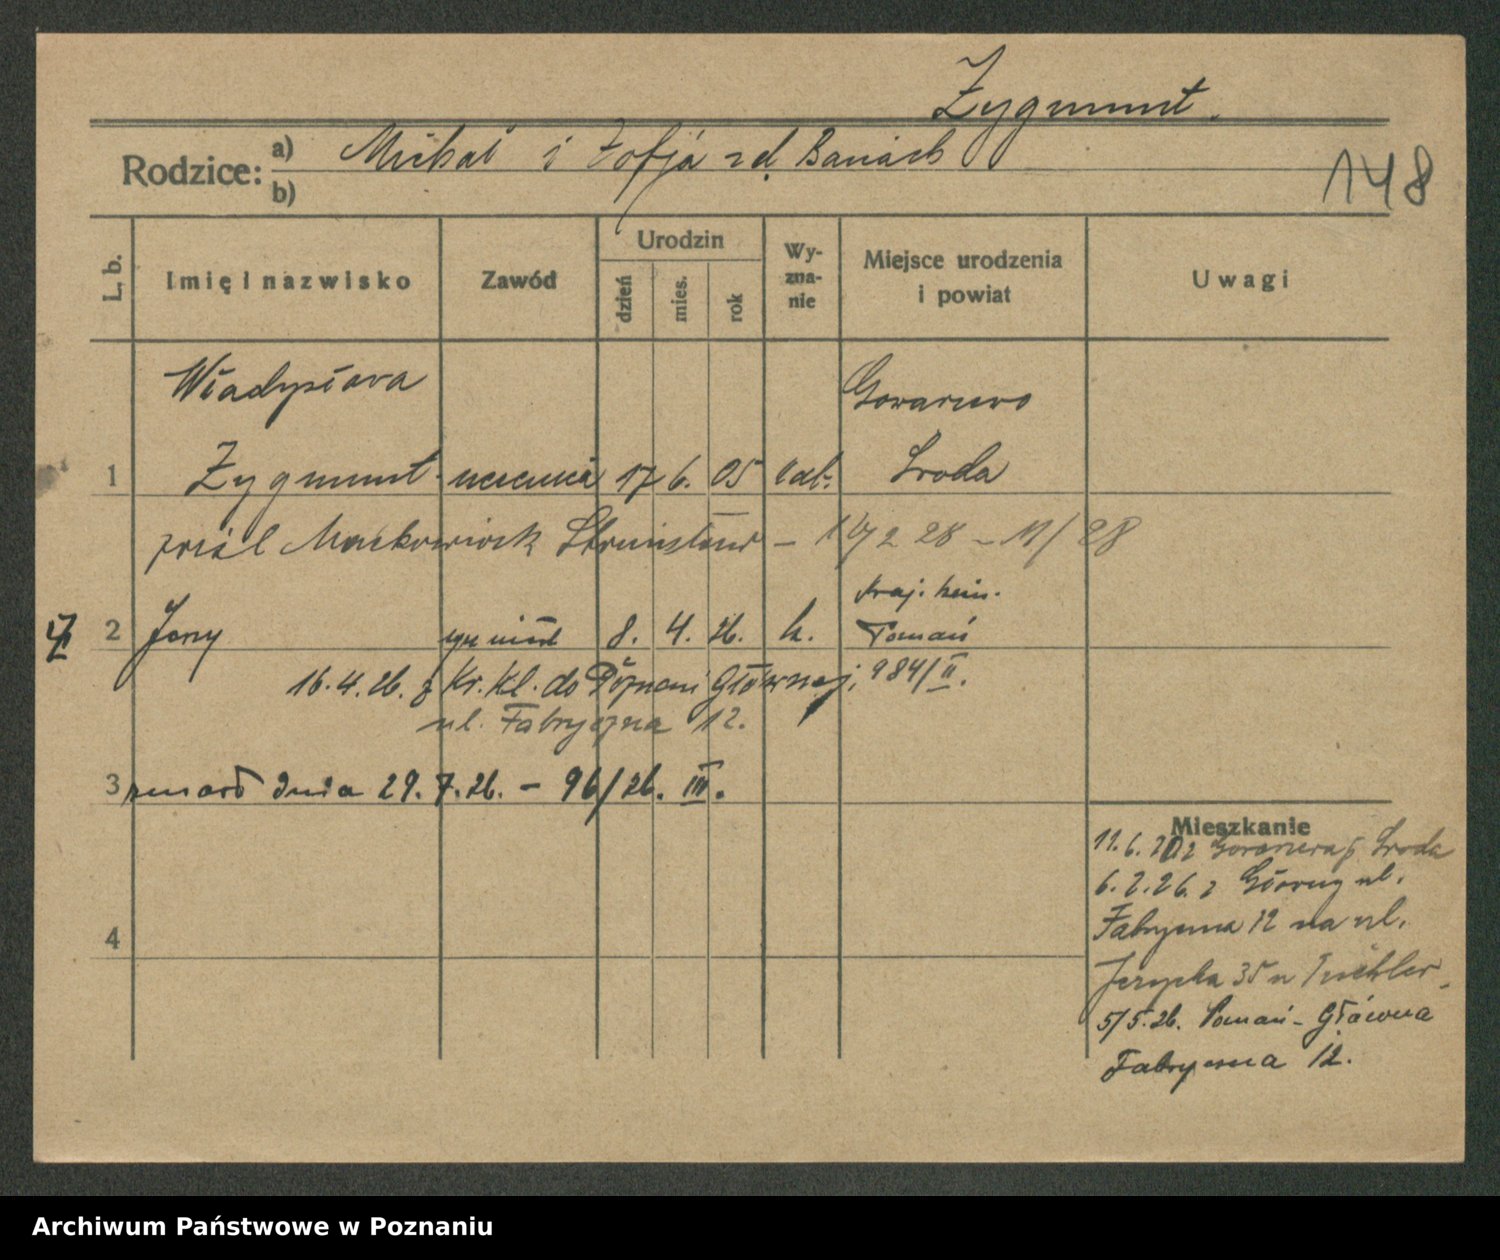 Zygmunt.
Rodzice: a) Michał i Zofja zd. Banach
b)
148
L. b. Imię i nazwisko Zawód Urodzin dzień mies. rok Wy-zna-nie Miejsce urodzenia i powiat Uwagi
Władysława Gowarzewo
1 Zygmunt uczenica 17 6. 05 kat. Środa
Maćkowiak Stanisław – 28 – 11/28
Kraj. klin.
2 Jerzy syn nieśl 8. 4. 26. k. Poznań
16.4.26. z Kr. Kl. do Poznań Głównej, 984/II.
ul. Fabryczna 12.
3 zmarł dnia 29.7.26. – 96/26. III.
Mieszkanie
11.6. z Gowarzewa p. Środa
6.2.26. z Główny ul.
4 Fabryczna 12 na ul.
Jerzycka 35 u
5/5.26. Poznań – Główna
Fabryczna 12.
Archiwum Państwowe w Poznaniu